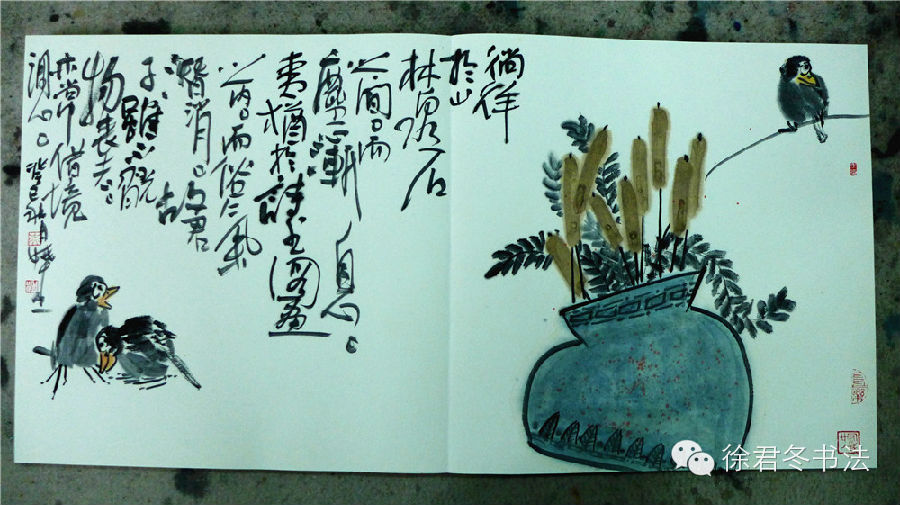 徜徉
於山
林泉石
之间而
塵心漸息
夷猶於詩書圖畫
之内而俗氣
潜消故君
子雖不玩
物丧志
亦常借境
調心癸巳
徐君冬书法